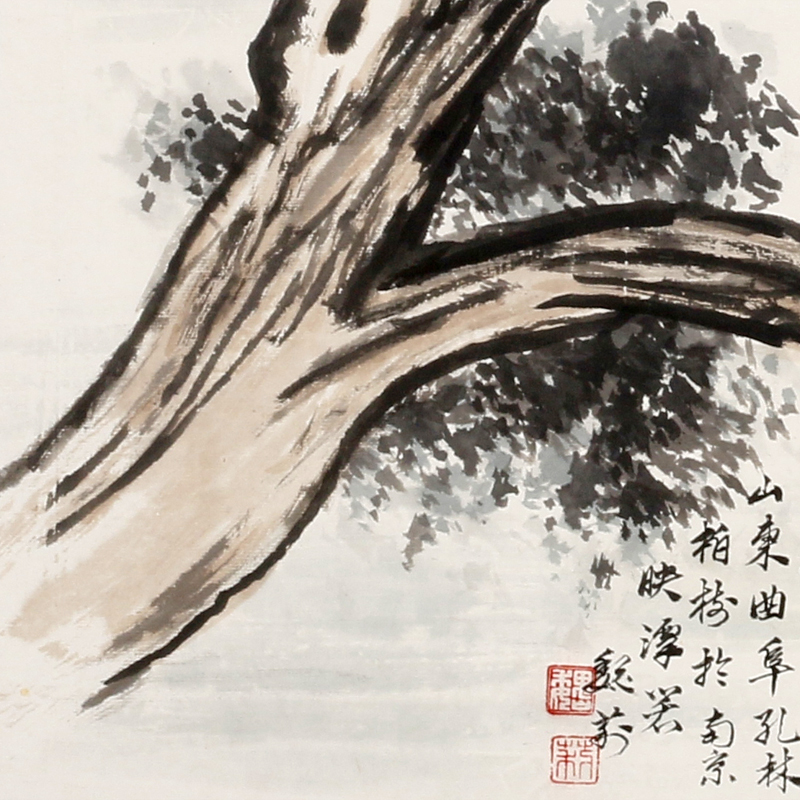 山東曲阜孔林
柏樹於南京
映潭畧
魏莉